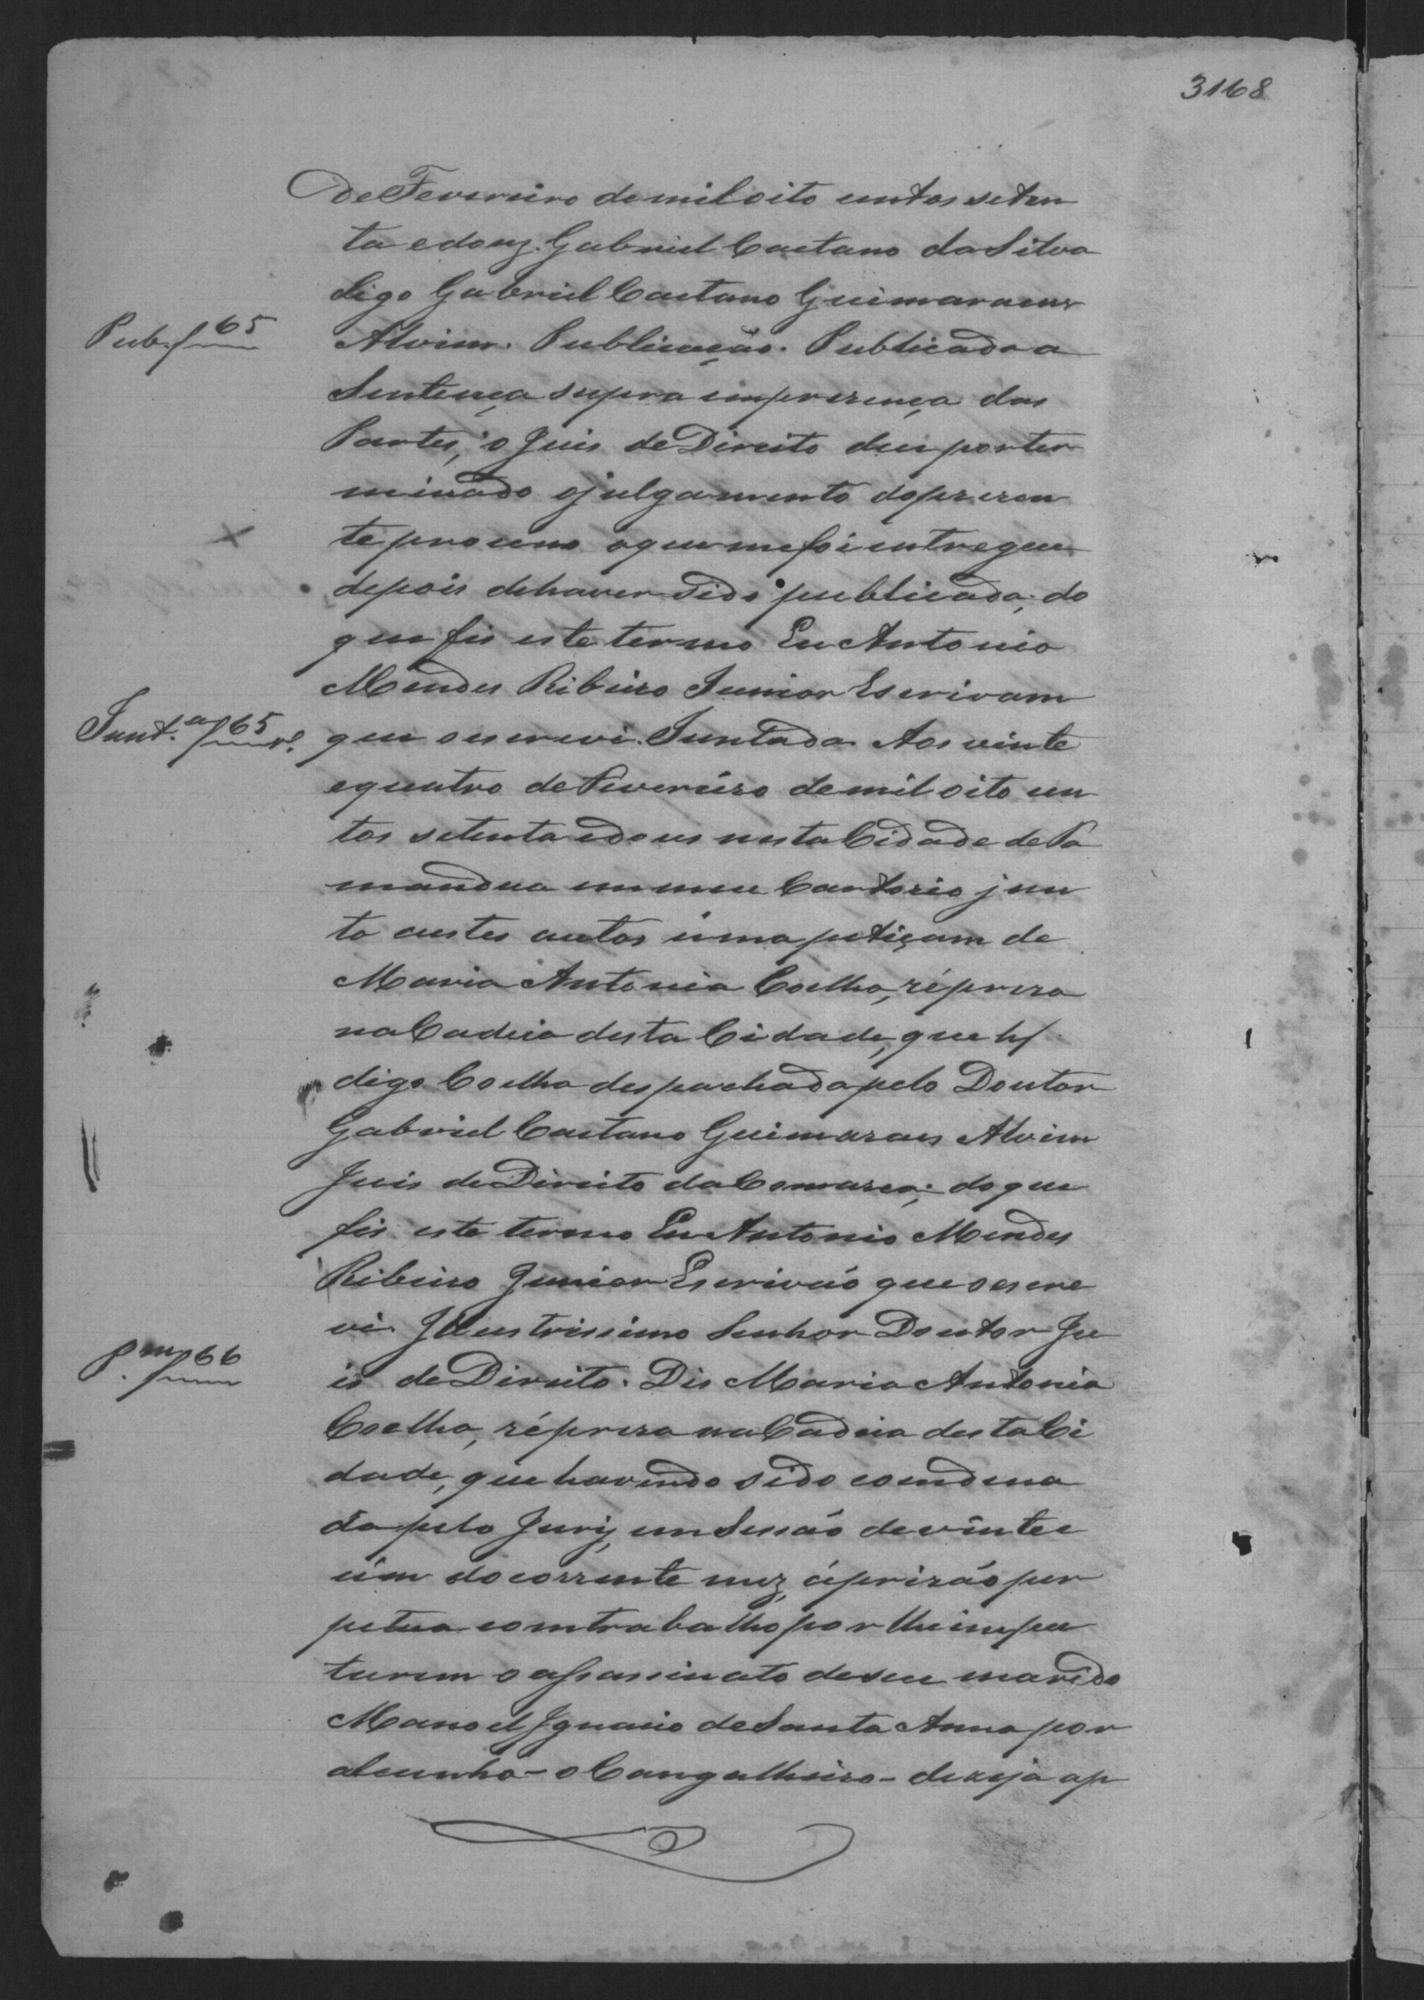 3168
de Fevereiro de mil oito centos seten
ta e douz. Gabriel Caetano da Silva
digo Gabriel Caetano Guimaraens
Pub. f 65
Alvim. Publicação. Publicada a
Sentença supra em presença das
Partes, o Juis de Direito deu por ter
minado o julgamento do presen
te processo o que me foi entregue
depois de haver sido publicada, do
que fis este termo Eu Antonio
Mendes Ribeiro Junior Escrivam
Junt.a f 65 v.
que o escrevi. Juntada Aos vinte
e quatro de Fevereiro de mil oito cen
tos setenta e dous nesta Cidade de Ta
mandua em meu Cartorio jun
to a estes autos uma petiçam de
Maria Antonia Coelho, ré preza
na Cadeia desta Cidade, que h/
digo Coelho despachada pelo Doutor
Gabriel Caetano Guimaraes Alvim
Juis de Direito da Comarca; do que
fis este termo Eu Antonio Mendes
Ribeiro Junior Escrivão que o escre
vi. Illustrissimo Senhor Doutor Ju
P.am f 66
is de Direito. Dis Maria Antonia
Coelho, ré preza na Cadeia desta Ci
dade, que havendo sido condena
da pelo Jury, em Sessão de vinte e
um do corrente mez, á prizão per
petua com trabalho por lhe impu
tarem o assassinato de seu marido
Manoel Ignacio de Santa Anna por
alcunha - o Cangalheiro - dezeja ap